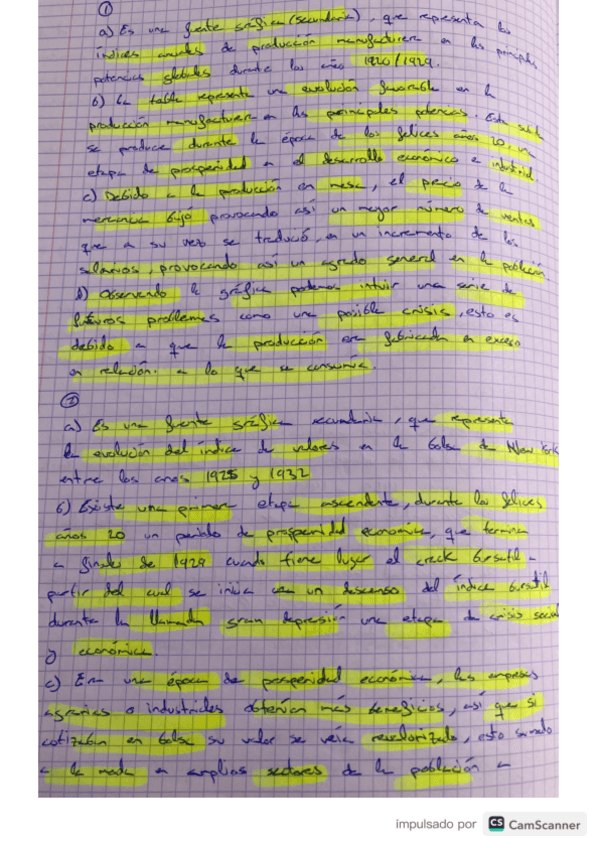 ①
a) Es una fuente gráfica (secundaria), que representa los
índices anuales de producción manufacturera en las principales
potencias globales durante los años 1920/1929.
b) La tabla representa una evolución favorable en la
producción manufacturera en las principales potencias. Esta
se produce durante la época de los felices años 20, una
etapa de prosperidad en el desarrollo económico e industrial
c) Debido a la producción en masa, el precio de la
mercancía bajó provocando así un mayor número de ventas
que a su vez se tradució, en un incremento de los
salarios, provocando así un agrado general en la población.
d) Observando la gráfica podemos intuir una serie de
futuros problemas como una posible crisis, esto es
debido a que la producción era fabricada en exceso
en relación a lo que se consumía.
②
a) Es una fuente gráfica secundaria, que representa
la evolución del índice de valores en la bolsa de New York
entre los años 1925 y 1932
b) Existe una primera etapa ascendente, durante los felices
años 20 un periodo de prosperidad económica, que termina
a finales de 1929 cuando tiene lugar el crack bursátil a
partir del cual se inicia con un descenso del índice bursátil
durante la llamada gran depresión una etapa de crisis social
y económica.
c) Era una época de prosperidad económica, las empresas
agrarias o industriales obtenían más beneficios, así que si
cotizaban en bolsa su valor se veía revalorizado, esto sumado
a la moda en amplios sectores de la población a
impulsado por CS CamScanner